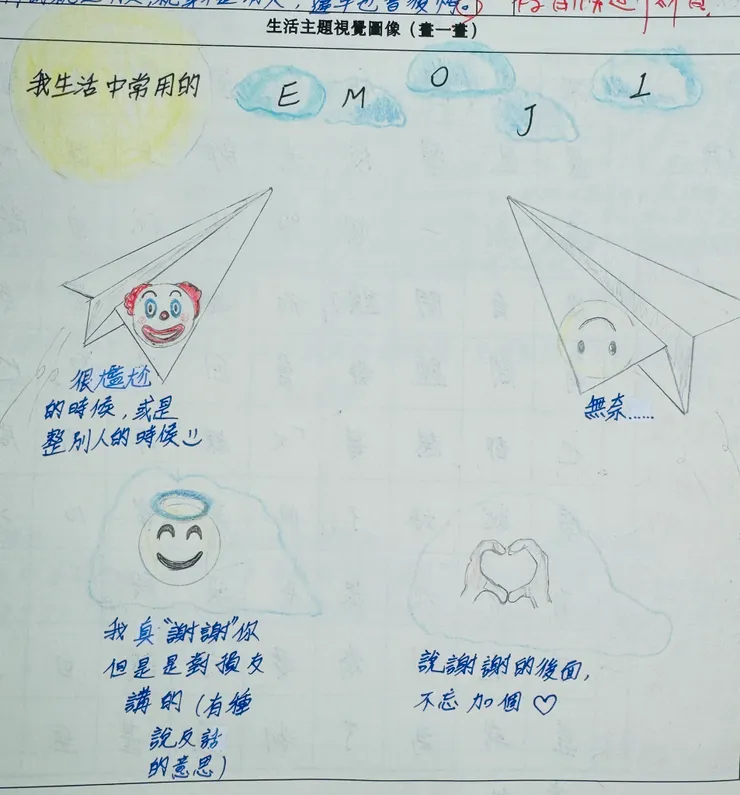 生活主題視覺圖像（畫一畫）
我生活中常用的 EMOJI
很尷尬
的時候，或是
整別人的時候
無奈……
我真“謝謝”你
但是是對損友
講的（有種
說反話
的意思）
說謝謝的後面，
不忘加個♡